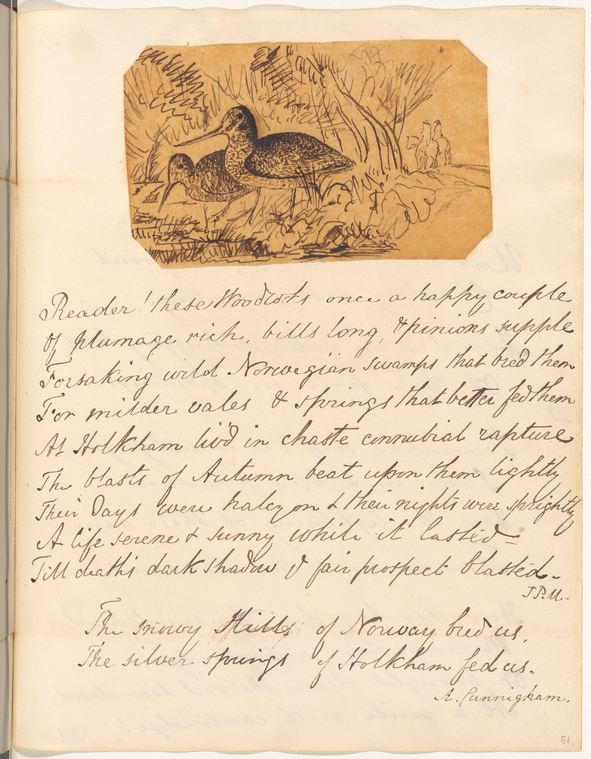 Reader! these Woodcks once a happy couple
Of plumage rich, bills long, & pinions supple
Forsaking wild Norwegian swamps that bred them
For milder vales & springs that better fed them
At Holkham liv'd in chaste connubial rapture
The blasts of Autumn beat upon them lightly
Their Days were halcyon & their nights were sprightly
A life serene & sunny while it lasted -
Till death's dark shadow fair prospect blasted -
J.P.M. -
The snowy Hills of Norway bred us,
The silver springs of Holkham fed us -
A. Cunnigham.
51